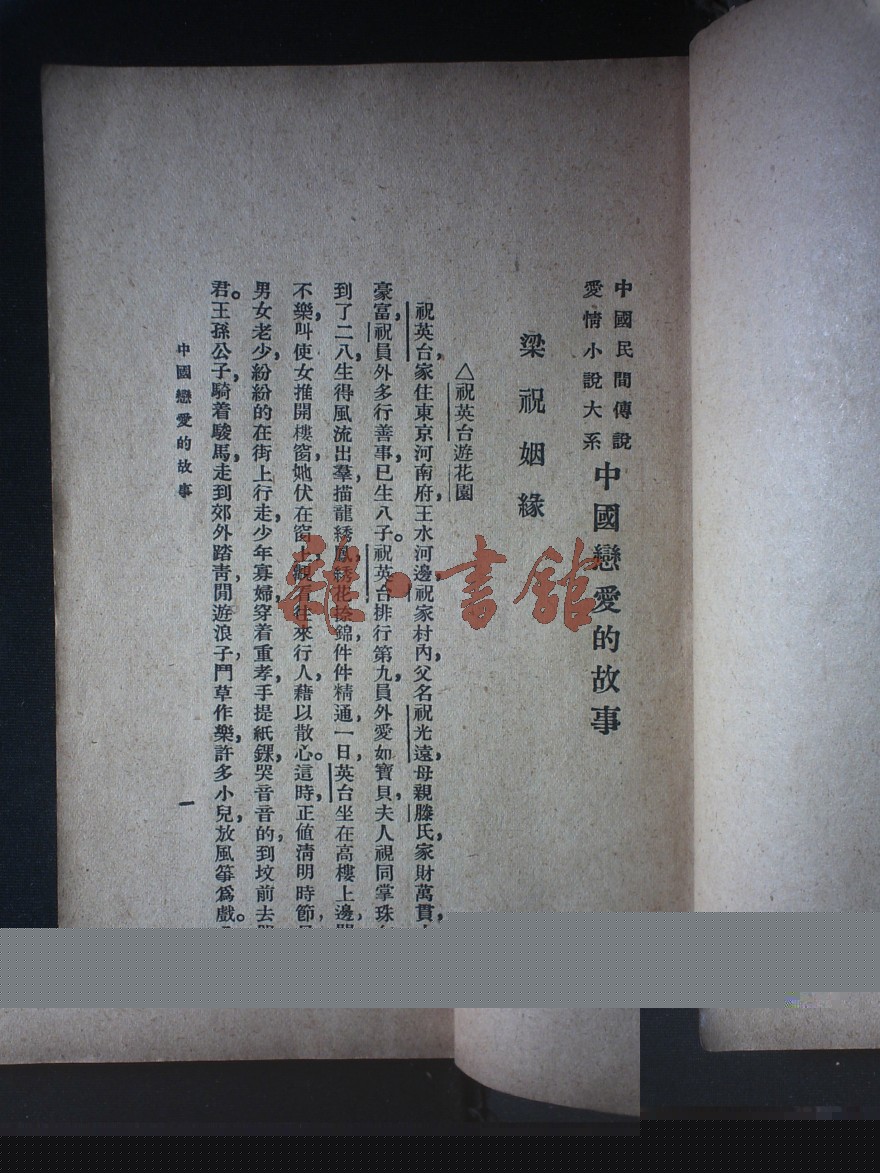 中國民間傳說
愛情小說大系
中國戀愛的故事
梁祝姻緣
△祝英台遊花園
祝英台家住東京河南府,王水河邊,祝家村內,父名祝光遠,母親滕氏,家財萬貫,
豪富,祝員外多行善事,已生八子。祝英台排行第九,員外愛如寶貝,夫人視同掌珠
到了二八,生得風流出羣,描龍綉鳳,綉花 錦,件件精通,一日,英台坐在高樓上邊,
不樂,叫使女推開樓窗,她伏在窗上,觀看往來行人,藉以散心。這時,正値淸明時節,
男女老少,紛紛的在街上行走,少年寡婦,穿着重孝,手提紙錁,哭音音的,到坟前去
君。王孫公子,騎着駿馬,走到郊外踏靑,閒遊浪子,鬥草作樂,許多小兒,放風箏爲戲。
中國戀愛的故事
一
雜·書館